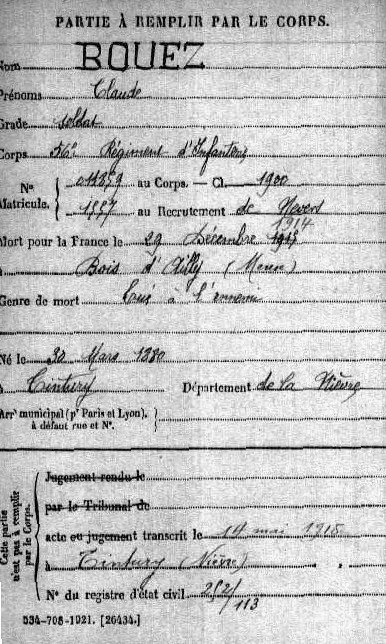 PARTIE À REMPLIR PAR LE CORPS.
Nom BOUEZ
Prénoms Claude
Grade soldat
Corps 56e Régiment d'Infanterie
N° 
au Corps. — Cl. 1900
Matricule. 1557 au Recrutement de Nevers
Mort pour la France le 29 Décembre 1914
à Bois d'Ailly (Meuse)
Genre de mort tué à l'ennemi
Né le 30 Mars 1880
à Tintury Département de la Nièvre
Arrt municipal (pr Paris et Lyon).
à défaut rue et N°.
Cette partie n'est pas à remplir par le Corps.
Jugement rendu le
par le Tribunal de
acte ou jugement transcrit le 14 mai 1915
à Tintury (Nièvre)
N° du registre d'état civil 252/113
534-708-1921. [26434.]